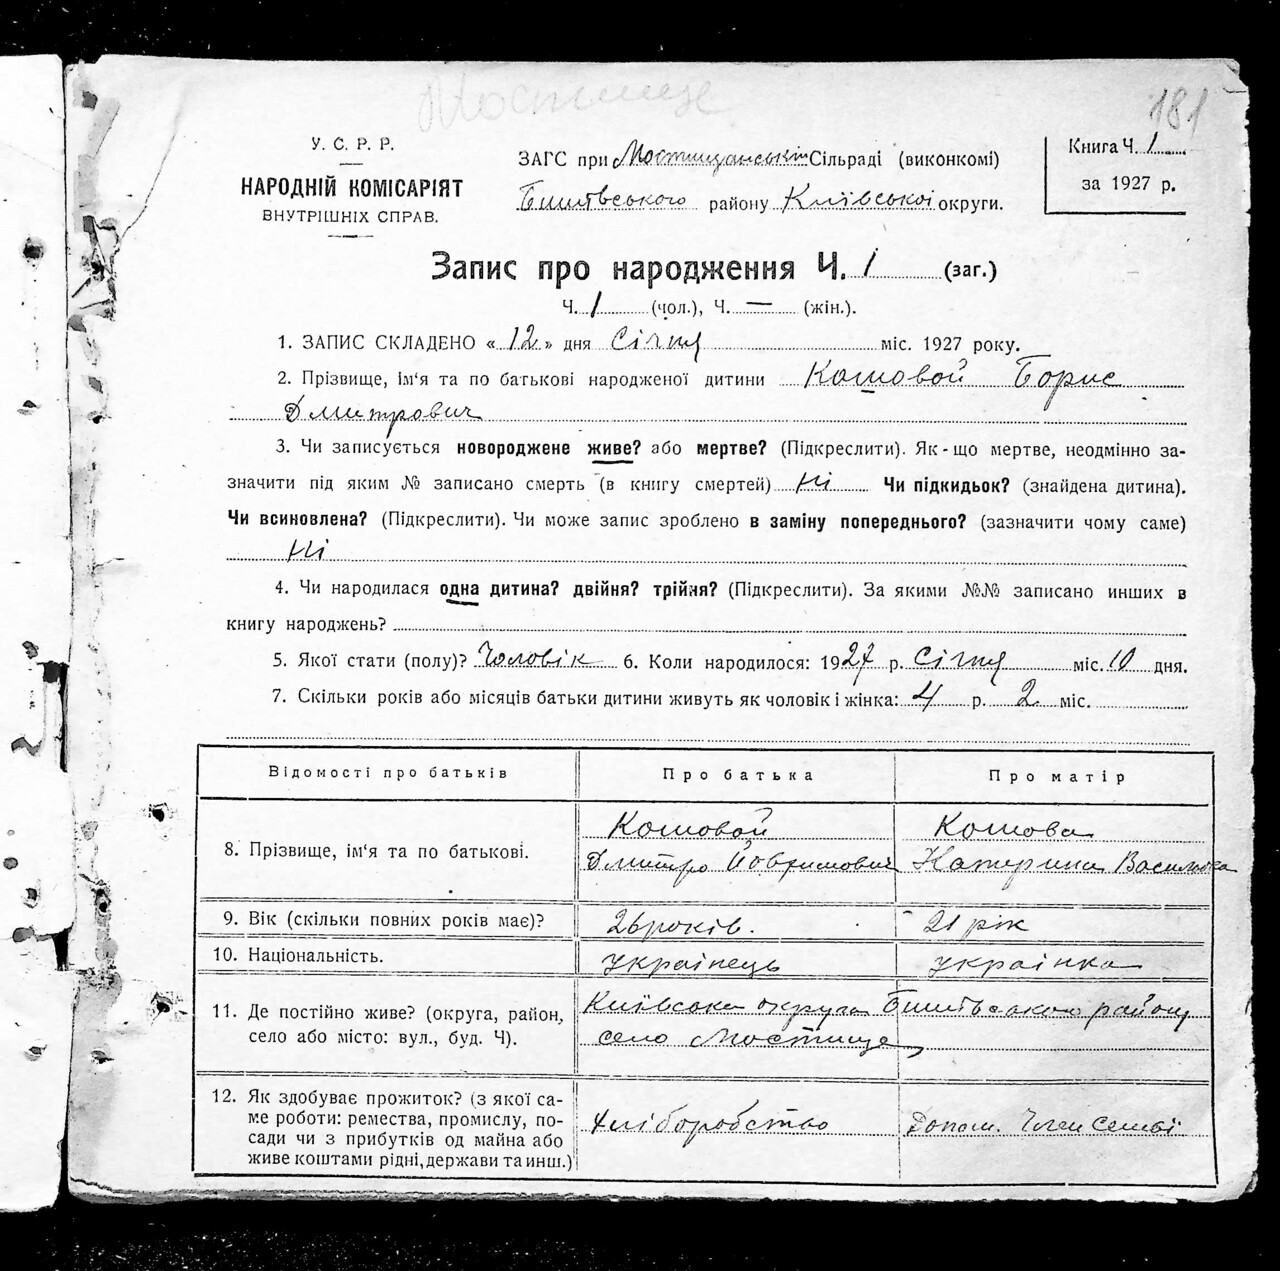 Мостище
181
У. С. Р. Р.
НАРОДНІЙ КОМІСАРІЯТ
ВНУТРІШНІХ СПРАВ.
ЗАГС при Мостищанській Сільраді (виконкомі)
Бишівського району Київської округи.
Книга Ч. 1
за 1927 р.
Запис про народження Ч. 1 (заг.)
Ч. 1 (чол.), Ч. — (жін.).
1. ЗАПИС СКЛАДЕНО « 12 » дня Січня міс. 1927 року.
2. Прізвище, ім'я та по батькові народженої дитини Кошовой Борис
Дмитрович
3. Чи записується новороджене живе? або мертве? (Підкреслити). Як-що мертве, неодмінно за-
значити під яким № записано смерть (в книгу смертей) Ні Чи підкидьок? (знайдена дитина).
Чи всиновлена? (Підкреслити). Чи може запис зроблено в заміну попереднього? (зазначити чому саме)
Ні
4. Чи народилася одна дитина? двійня? трійня? (Підкреслити). За якими №№ записано инших в
книгу народжень?
5. Якої стати (полу)? Чоловік 6. Коли народилося: 1927 р. Січня міс. 10 дня.
7. Скільки років або місяців батьки дитини живуть як чоловік і жінка: 4 р. 2 міс.
Відомості про батьків Про батька Про матір
8. Прізвище, ім'я та по батькові.
Кошовой Кошова
Дмитро Йовхимович Катерина Василівна
9. Вік (скільки повних років має)? 26 років. 21 рік
10. Національність. Українець Українка
11. Де постійно живе? (округа, район,
село або місто: вул., буд. Ч).
Київська округа Бишівського району
село Мостище
12. Як здобуває прожиток? (з якої са-
ме роботи: ремества, промислу, по-
сади чи з прибутків од майна або
живе коштами рідні, держави та инш.)
Хліборобство Допом. Член семьї